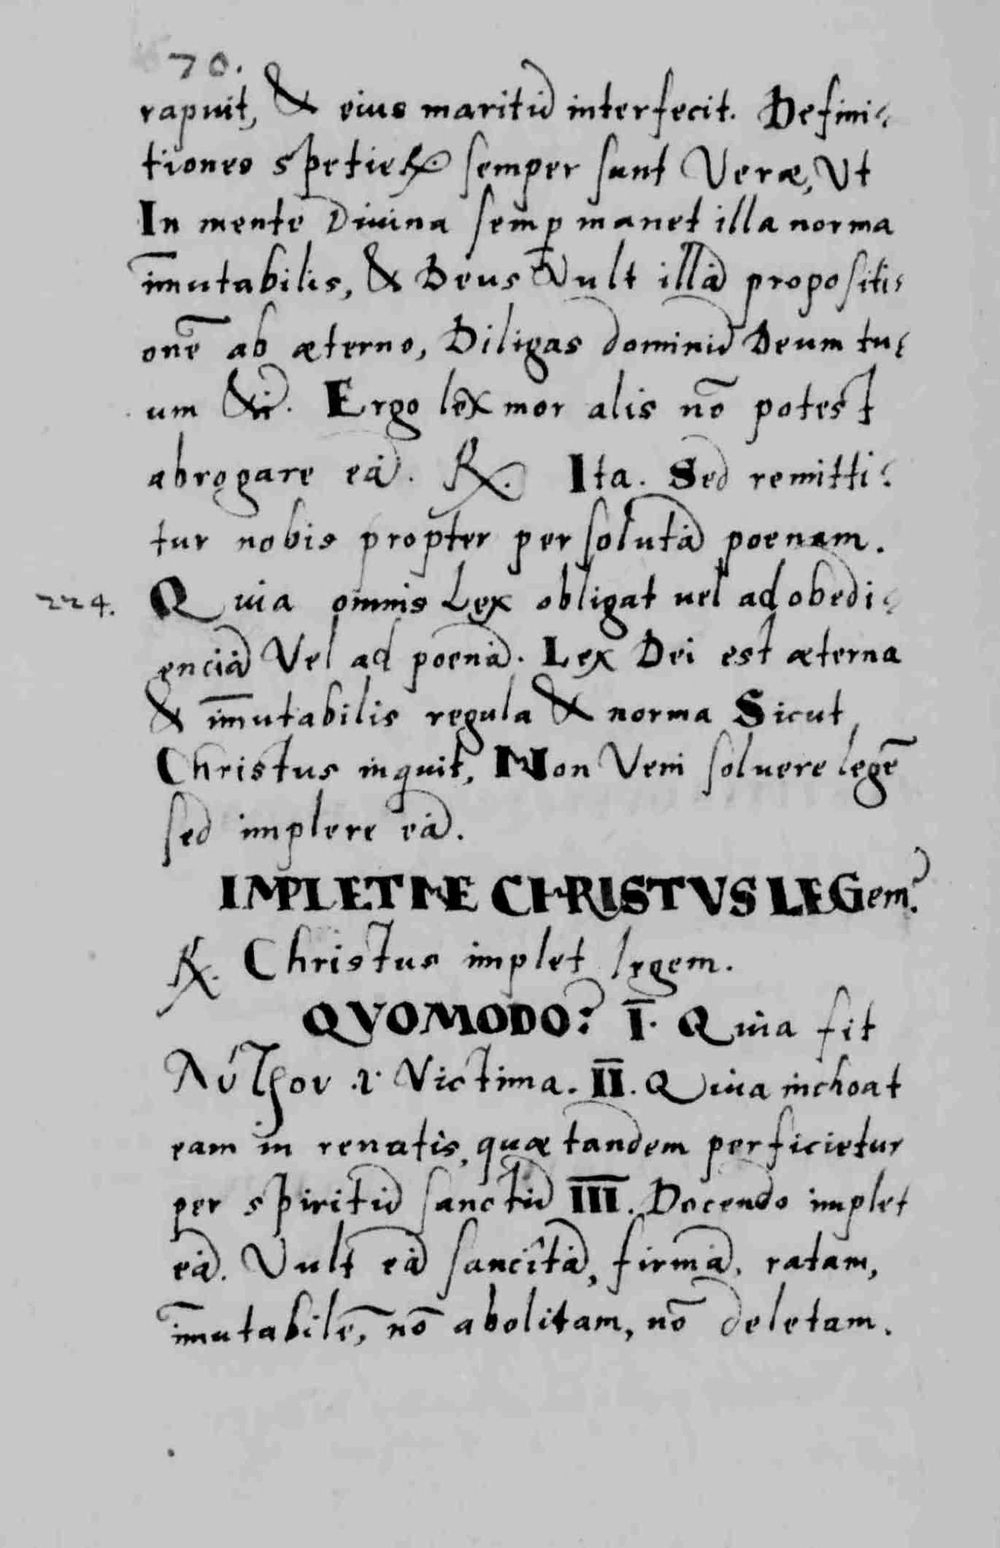 70.
rapuit, & eius maritū interfecit. Defini-
tiones spetieꝝ semper sunt Veræ, Vt
In mente Diuina semꝑ manet illa norma
im̄utabilis, & Deus Vult illā propositi-
onē ab æterno, Diligas dominū Deum tu-
um &c. Ergo lex moralis nō potest
abrogare eā. ℞. Ita. Sed remitti-
tur nobis propter persolutā poenam.
224. Quia omnis Lex obligat uel ad obedi-
enciā Vel ad poenā. Lex Dei est æterna
& im̄utabilis regula & norma Sicut
Christus inquit, Non Veni soluere legē
sed implere eā.
IMPLETNE CHRISTVS LEGem?
℞. Christus implet legem.
QVOMODO? I. Quia fit
λύτρον .i. Victima. II. Quia inchoat
eam in renatis, quæ tandem perficietur
per spiritū sanctū III. Docendo implet
eā. Vult eā sancitā, firmā, ratam,
im̄utabilē, nō abolitam, nō deletam.